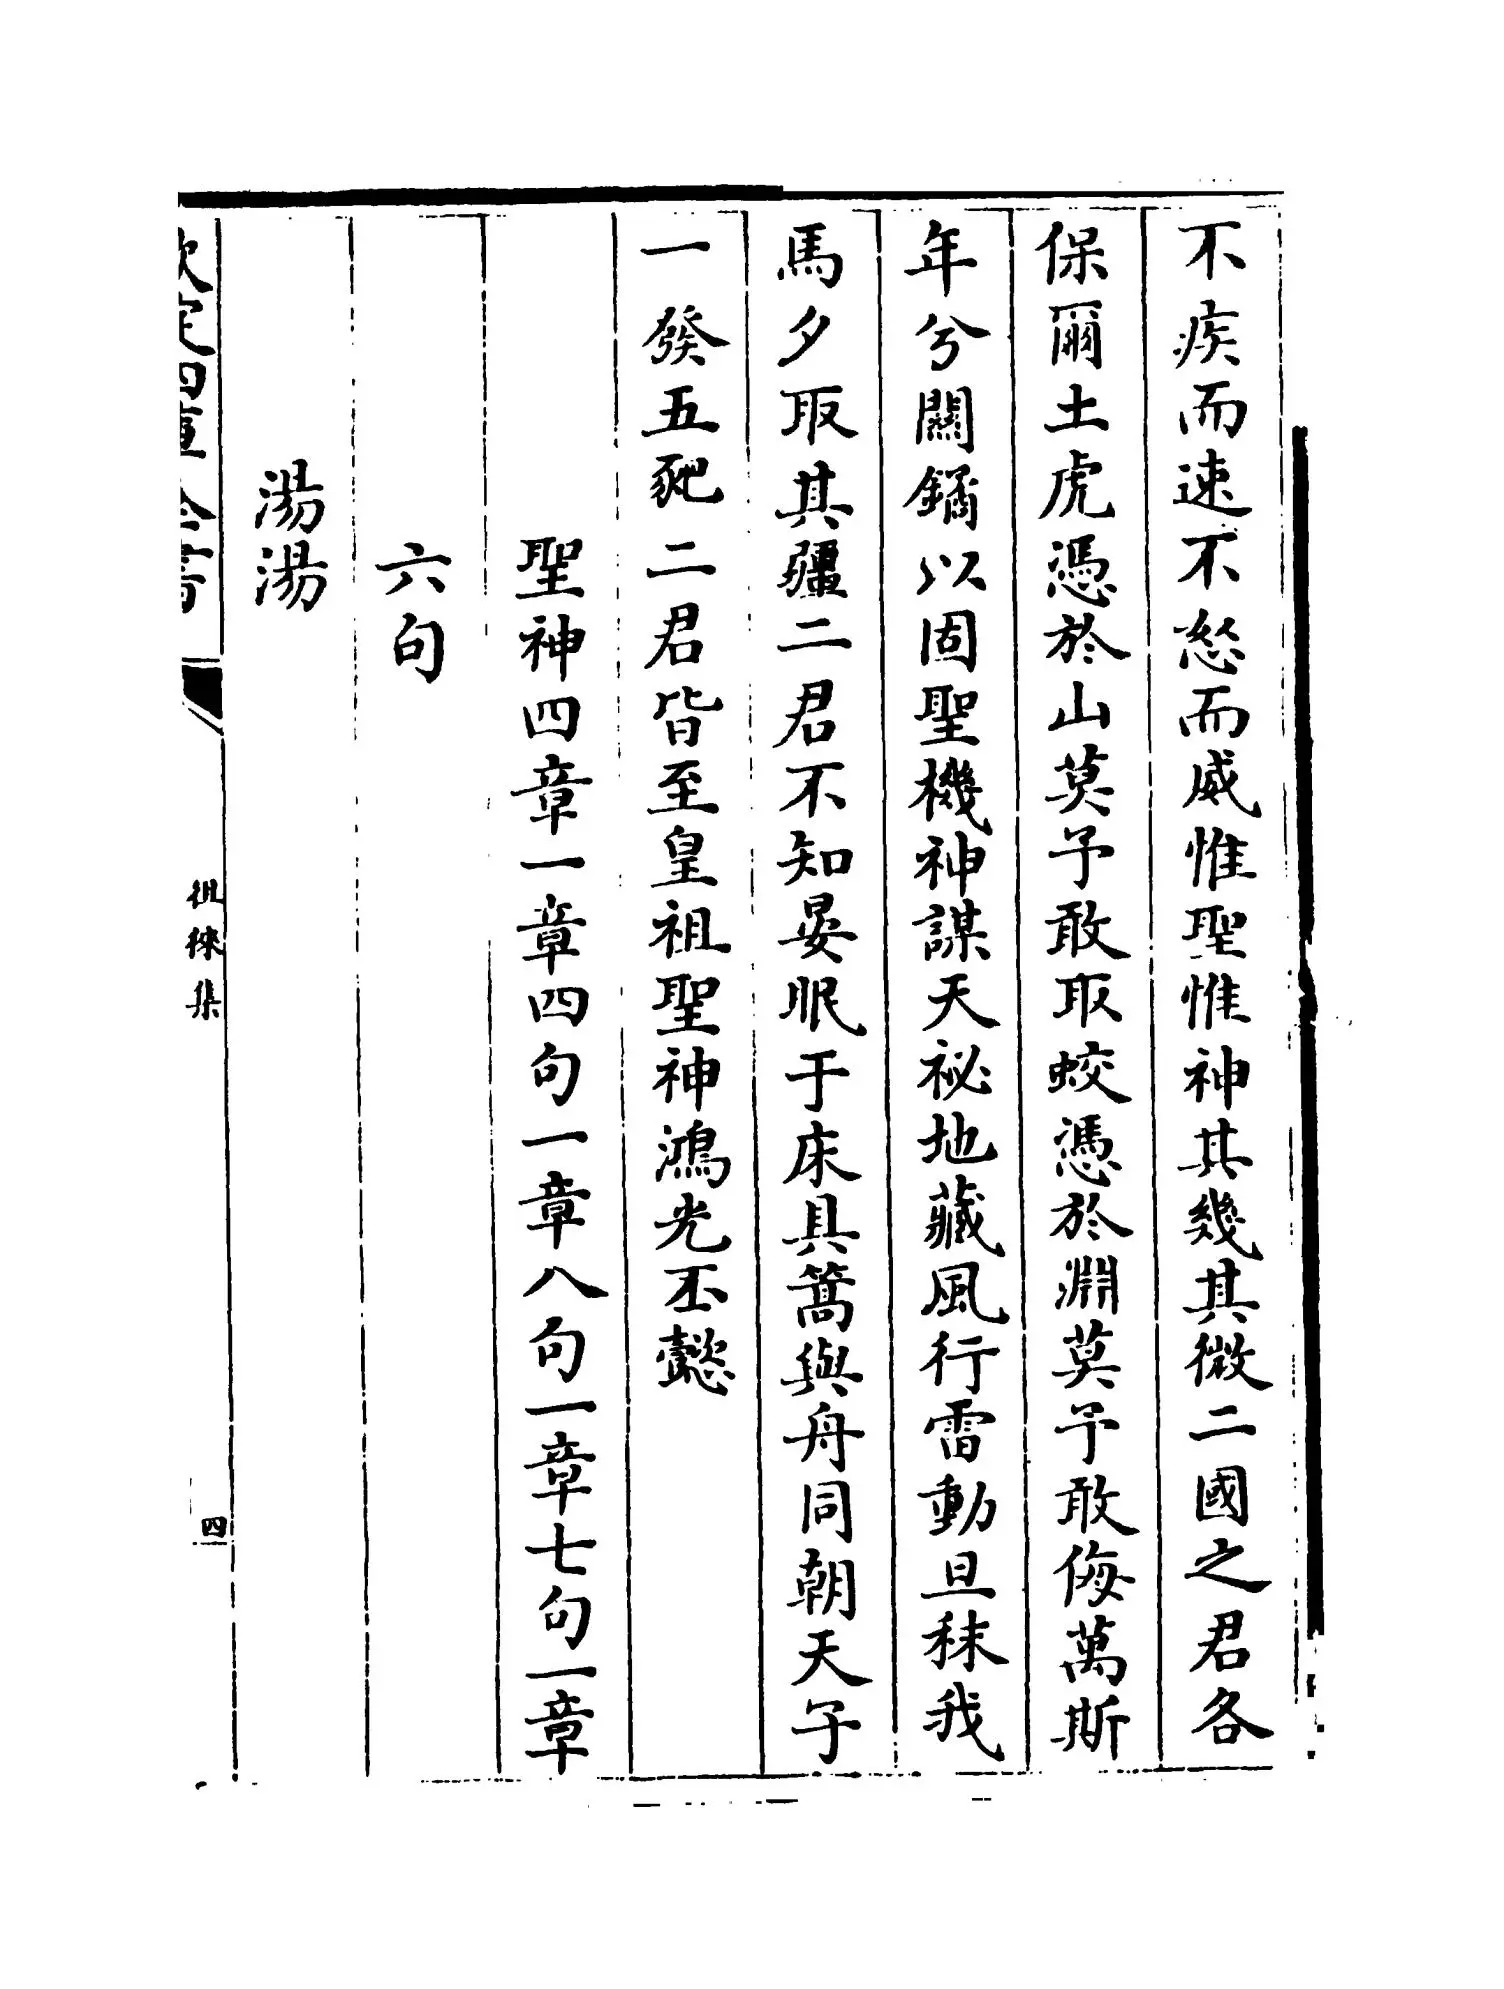 不疾而速不怒而威惟聖惟神其幾其微二國之君各
保爾土虎憑於山莫予敢取蛟憑於淵莫予敢侮萬斯
年兮關鐍以固聖機神謀天祕地藏風行雷動旦秣我
馬夕取其疆二君不知晏眠于床具篙與舟同朝天子
一發五豝二君皆至皇祖聖神鴻光丕懿
聖神四章一章四句一章八句一章七句一章
六句
湯湯
欽定四庫全書
徂徠集
四